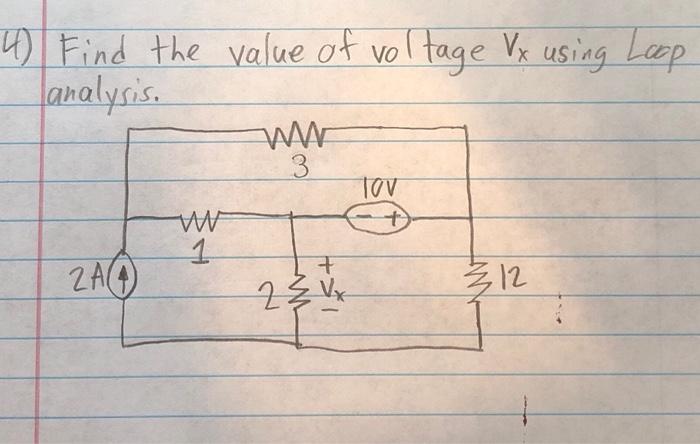 4) Find the value of voltage Vx using Loop
analysis.
3
10V
- +
1
2A
2
+
Vx
-
12